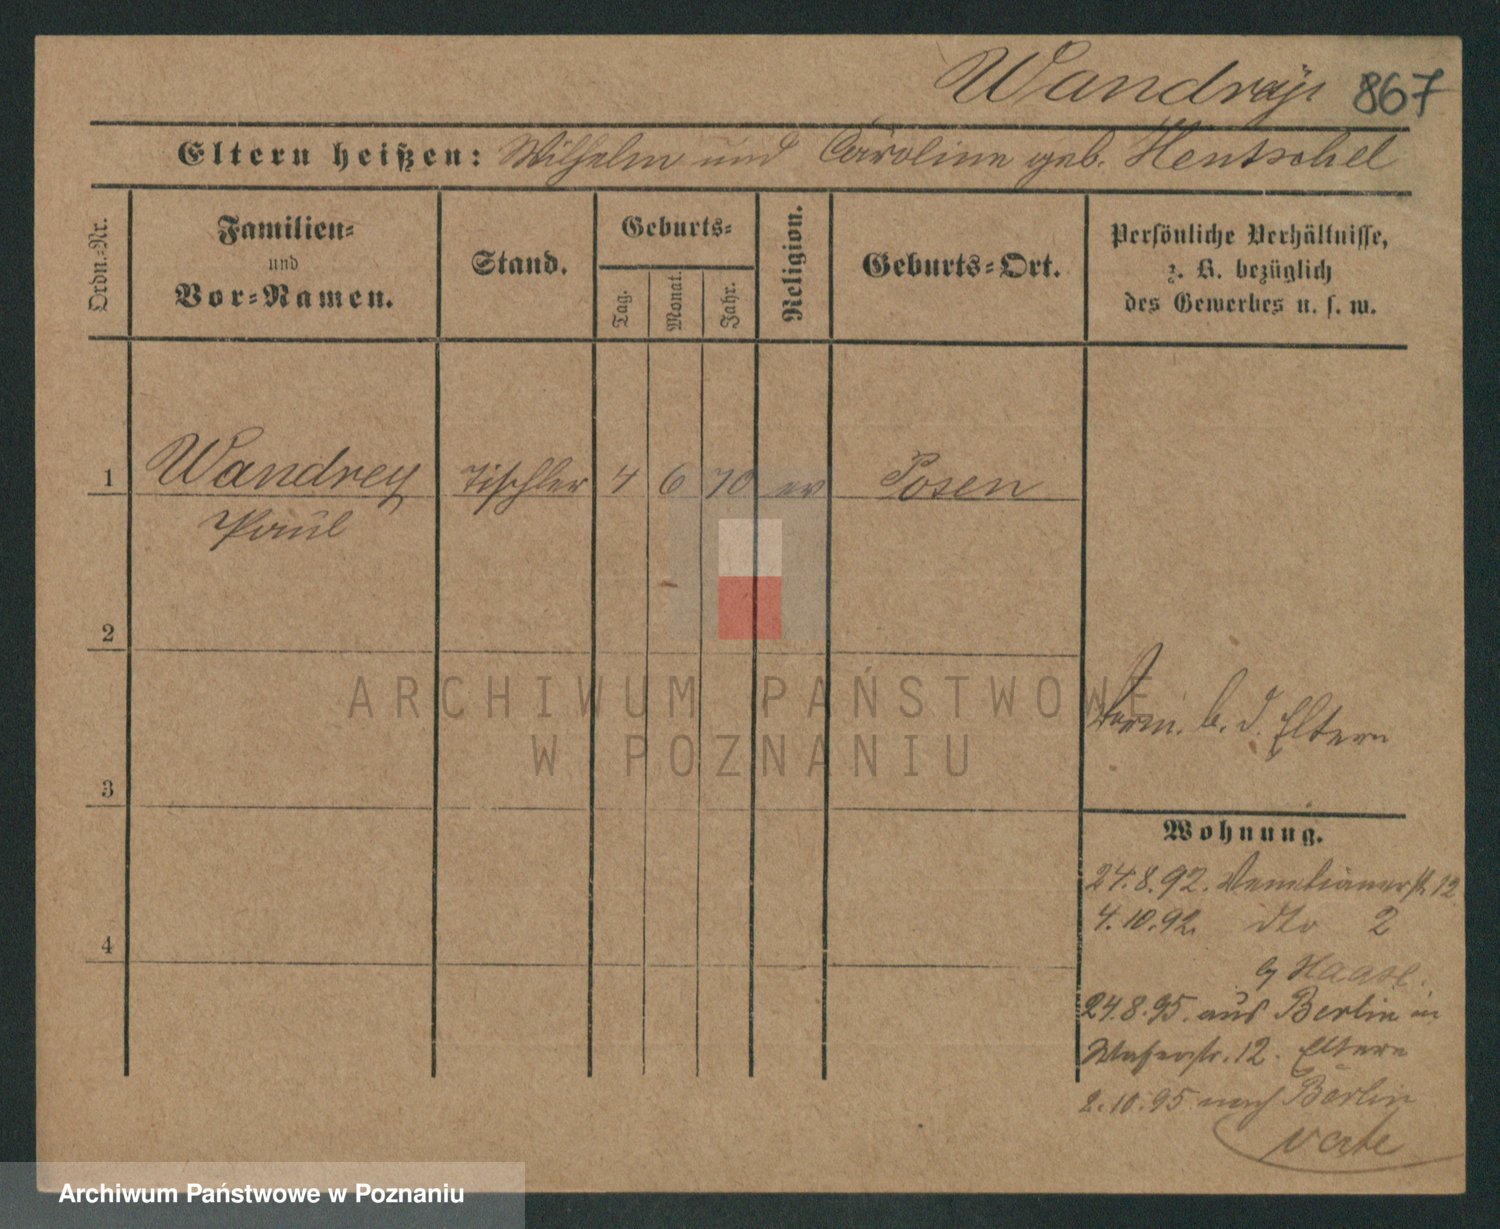 Wandrey 867
Eltern heißen: Wilhelm und Caroline geb. Hentschel
Ordn.-Nr.
Familien-
und
Vor-Namen.
Stand.
Geburts-
Tag.
Monat.
Jahr.
Religion.
Geburts-Ort.
Persönliche Verhältnisse,
z. B. bezüglich
des Gewerbes u. s. w.
1 Wandrey Tischler 4 6 70 ev Posen
Paul
2
ARCHIWUM PAŃSTWOWE
W POZNANIU
b. d. Eltern
3
Wohnung.
24.8.92. Venetianerstr 12
4.10.92. dto 2
b/ Haase.
4
24.8.95. aus Berlin in
12. Eltern
2.10.95 nach Berlin
Archiwum Państwowe w Poznaniu